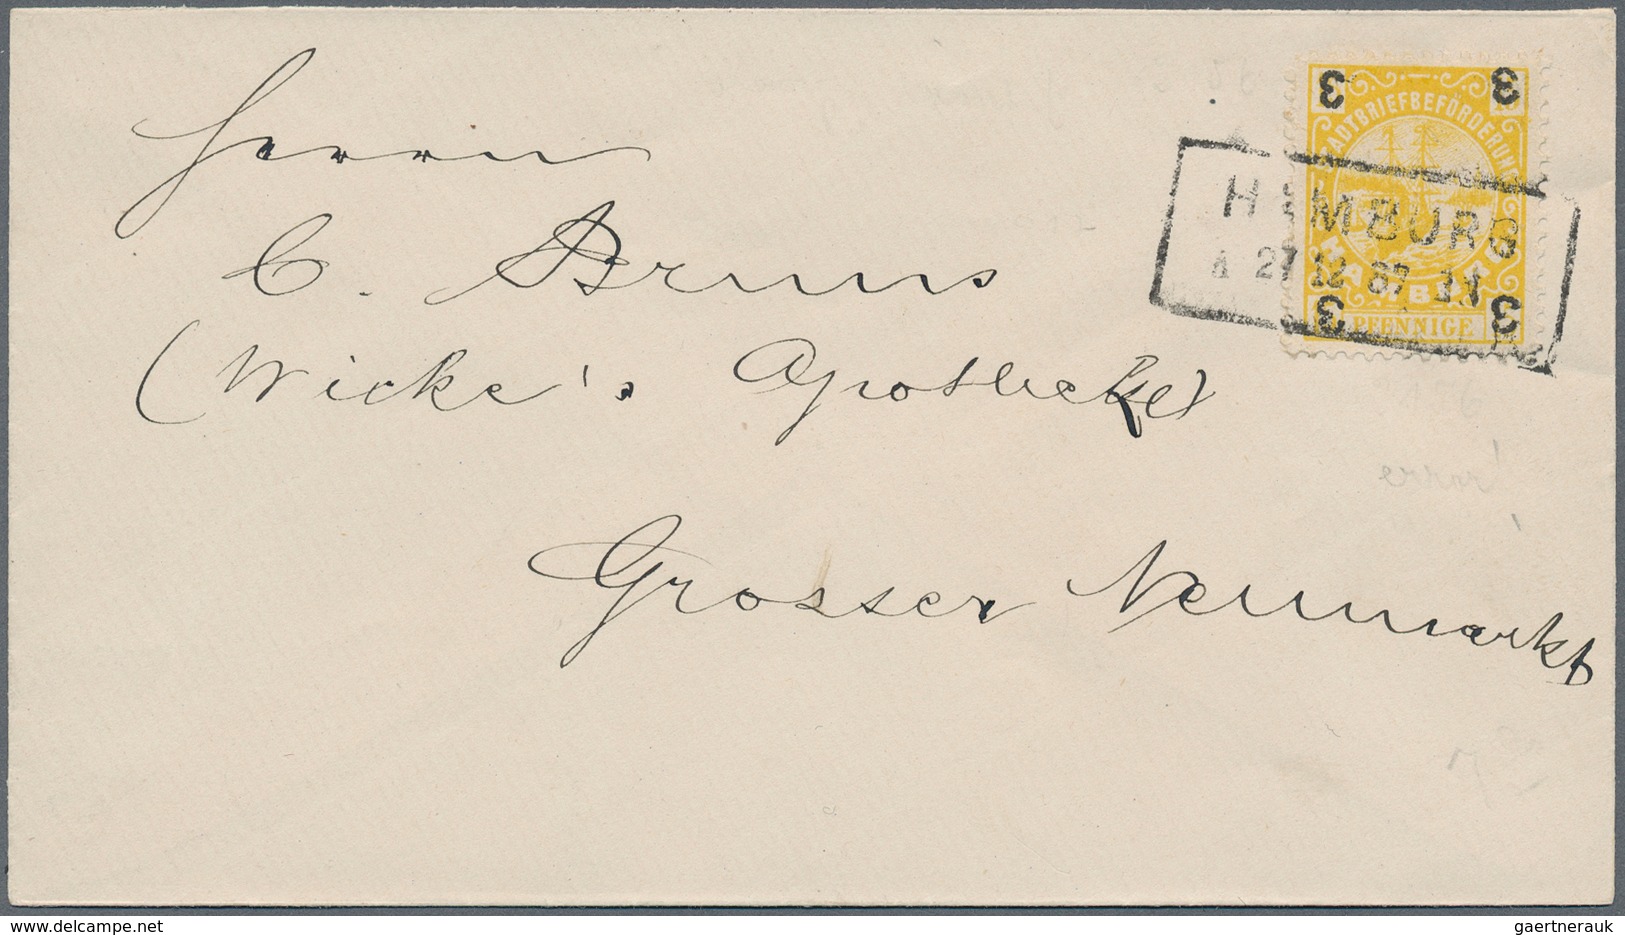 Herrn
C. Bruns
(Wicke's Apotheke)
Grosser Neumarkt
3 3
ADTBRIEFBEFÖRDERUN
HAMBURG
PFENNIGE
3 3
HAMBURG
1 27 12 87
delcampe.net
gaertnerauk